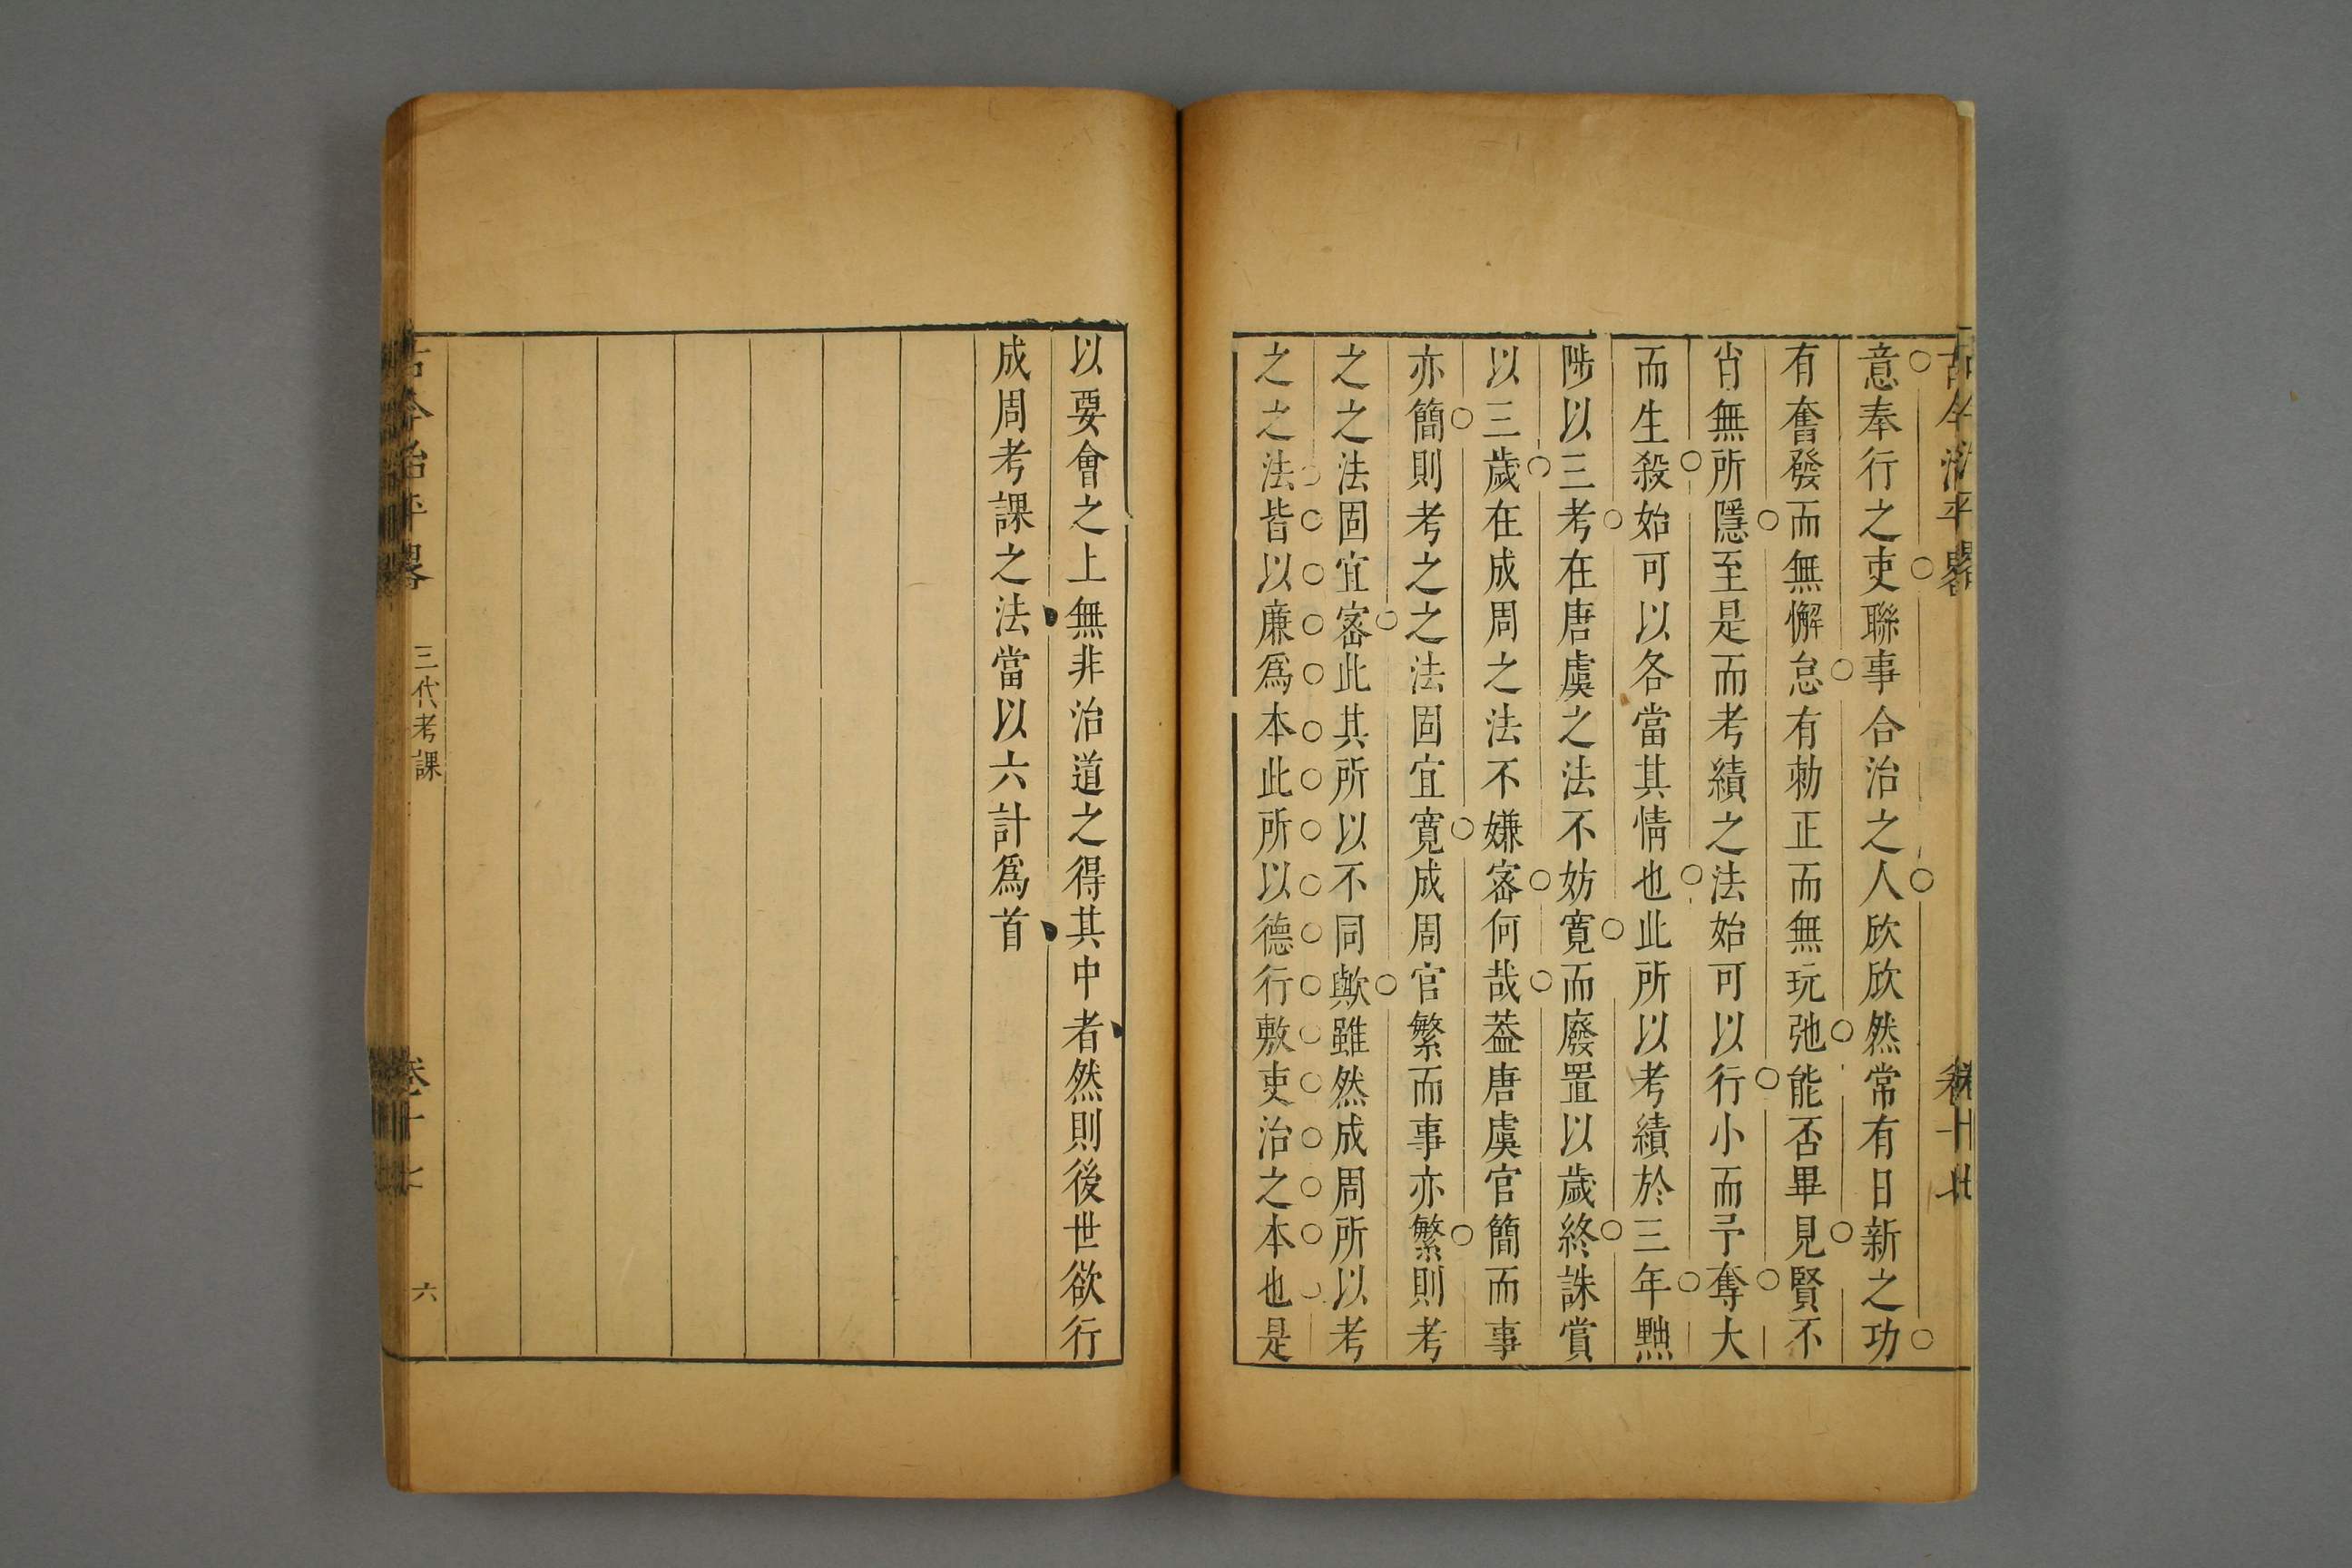 古今治平畧
卷十七
意奉行之吏聯事合治之人欣欣然常有日新之功
有奮發而無懈怠有勑正而無玩弛能否畢見賢不
肖無所隱至是而考績之法始可以行小而予奪大
而生殺始可以各當其情也此所以考績於三年黜
陟以三考在唐虞之法不妨寬而廢置以歲終誅賞
以三歲在成周之法不嫌宻何哉葢唐虞官簡而事
亦簡則考之之法固宜寬成周官繁而事亦繁則考
之之法固宜宻此其所以不同歟雖然成周所以考
之之法皆以廉爲本此所以德行敷吏治之本也是
以要會之上無非治道之得其中者然則後世欲行
成周考課之法當以六計爲首
古今治平畧
三代考課
卷十七
六